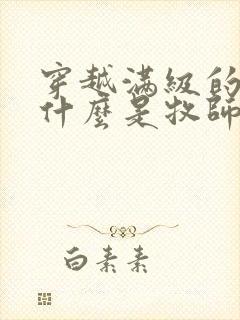 穿越滿級的
什麼是牧師
白素素